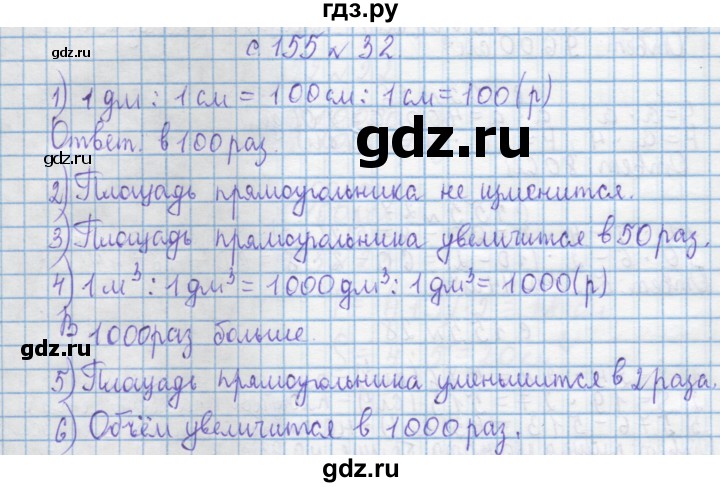 гдз.ру
gdz.ru
gdz.ru
с. 155 № 32.
1) 1 дм : 1 см = 100 см : 1 см = 100 (р)
gdz.ru
Ответ. в 100 раз.
2) Площадь прямоугольника не изменится.
gdz.ru
3) Площадь прямоугольника увеличится в 50 раз.
4) 1 м³ : 1 дм³ = 1000 дм³ : 1 дм³ = 1000 (р)
В 1000 раз больше.
gdz.ru
gdz.ru
5) Площадь прямоугольника уменьшится в 2 раза.
6) Объём увеличится в 1000 раз.
gdz.ru
gdz.ru